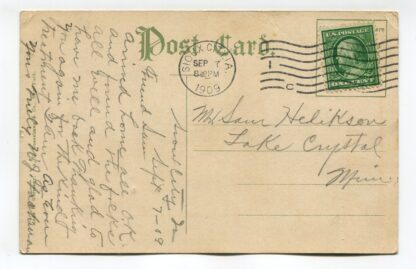 Post Card.
SIOUX CITY, IA.
SEP 7
8-PM
1909
1
C
U.S. POSTAGE
ONE CENT
Mr Sam Helikson
Lake Crystal
Minn
Sioux City Ia
Sept 7-09
Friend Sam
Arrived home all O.K.
and found the folks
all well and glad to
have me back Thanking
you again for the kind
treatment I am as ever
Yours Truly,